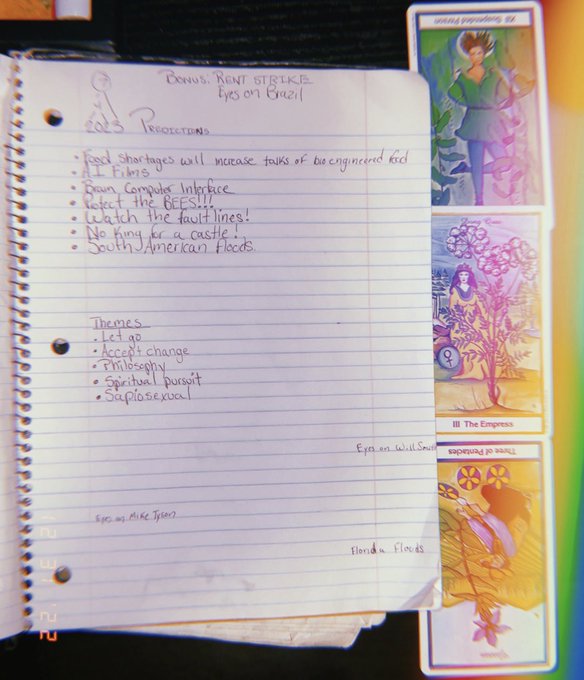 BONUS: RENT STRIKE
Eyes on Brazil
2023 PREDICTIONS
• Food shortages will increase talks of bioengineered food
• A.I Films
• Brain Computer Interface
• Protect the BEES!!!
• Watch the faultlines!
• No King for a castle!
• South American floods.
Themes
• Let go
• Accept change
• Philosophy
• Spiritual pursuit
• Sapiosexual
Eyes on Will Smith
Eyes on Mike Tyson
Florida Floods
12 31 '22
XII Suspended Person
III The Empress
Three of Pentacles